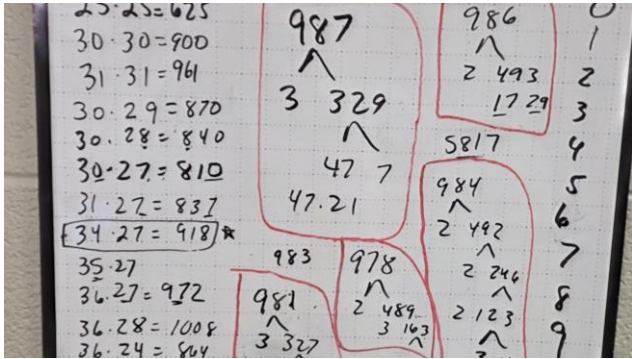 25·25=625
30·30=900
31·31=961
30·29=870
30·28=840
30·27=810
31·27=837
34·27=918*
35·27
36·27=972
36·28=1008
36·24=864
987
3 329
47 7
47·21
983
981
3 327
978
2 489
3 163
986
2 493
17 29
5817
984
2 492
2 246
2 123
3
0
1
2
3
4
5
6
7
8
9